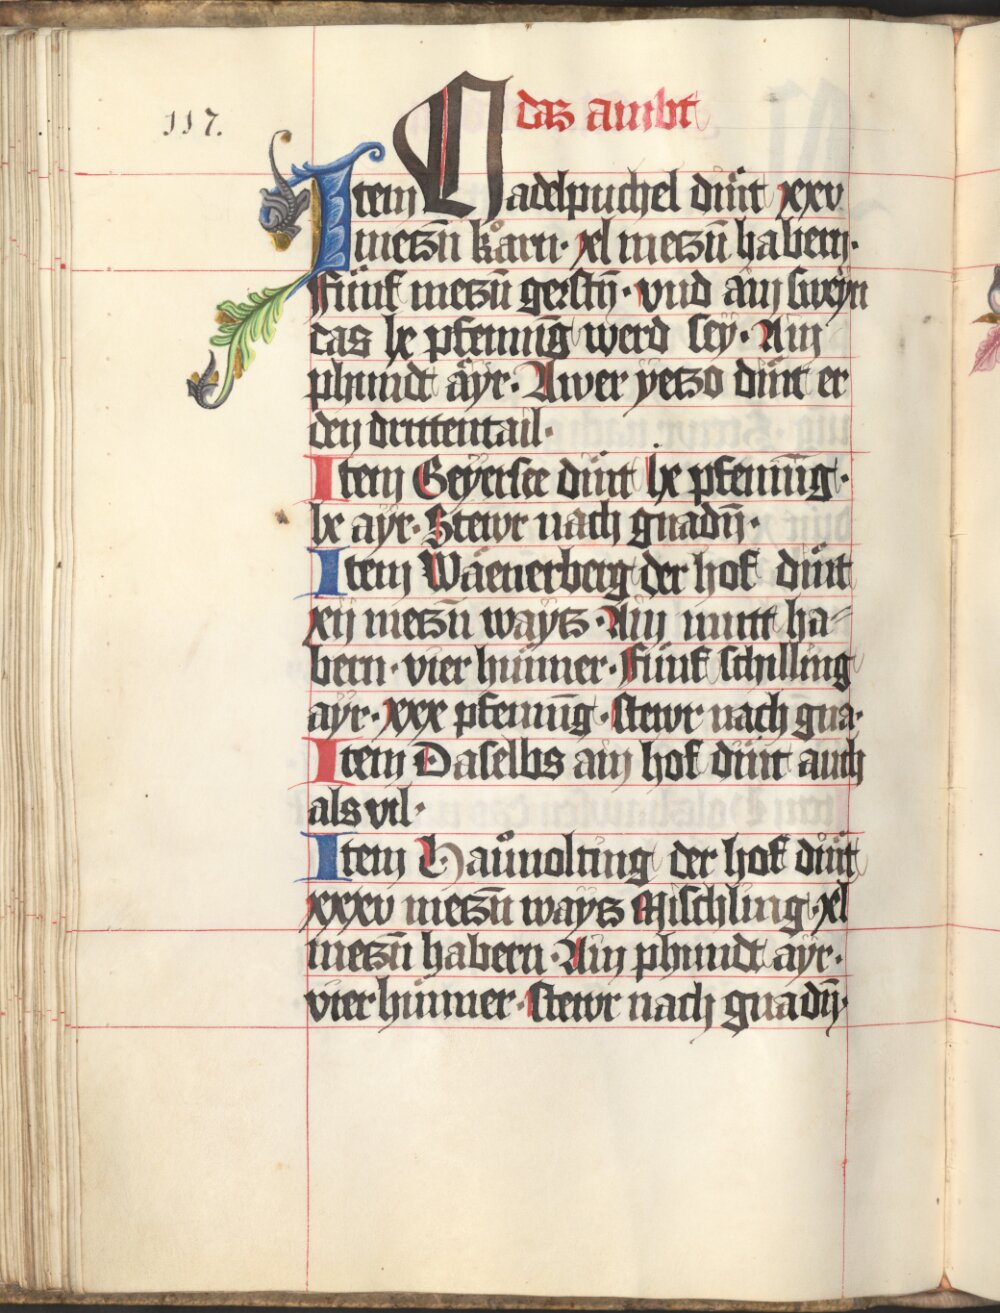 117.
das ambt
Item Nadelpuchel dint xxv
metzn̄ koͤarn · xl metzn̄ habern ·
Fünf metzn̄ gerstn̄ · vnd ain sweyn
das lx pfennīg werd sey · Ain
phundt aÿr · Awer yetzo dint er
den drittentail ·
Item Geyersee dint lx pfennīg ·
lx ayr · Stewr nach gnadn̄ ·
Item Wäenerberg der hof dint
xij metzn̄ waytz · Ain mutt ha⸗
bern · vier hünner · Fünf schilling
ayr · xxx pfennīg · stewr nach gna ·
Item Daselbs ain hof dint auch
als vil ·
Item Haünolting der hof dint
xxxv metzn̄ waytz Mischling · xl
metzn̄ habern · Ain phundt ayr ·
vier hünner · stewr nach gnadn̄ ·